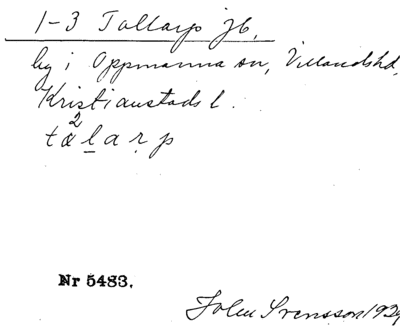 1-3 Tollarp jb.
by i Oppmanna sn, Villandshd,
Kristianstads l.
tå²larp
Nr 5483.
John Svensson 192